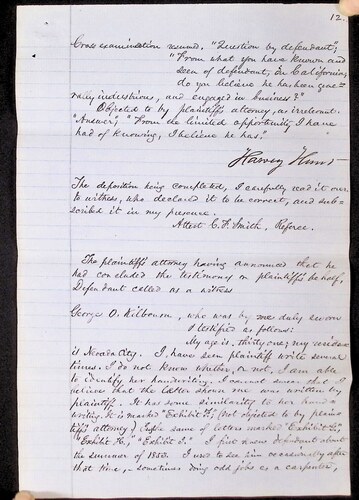 12.
Cross examination resumed. "Question by defendant";
"From what you have known and
seen of defendant, In California,
do you believe he has been gene-
rally industrious, and engaged in business?"
Objected to by plaintiffs attorney, as irrelevant.
"Answer", "From the limited opportunity I have
had of knowing, I believe he has."
Harvey Hunt
The deposition being completed, I carefully read it over
to witness, who declared it to be correct, and sub-
scribed it in my presence.
Attest C. F. Smith, Referee.
The plaintiff's attorney having announced that he
had concluded the testimony on plaintiff's behalf,
Defendant called as a witness
George O. Kilbourn, who was by me duly sworn
& testified as follows:
My age is thirty one; my residence
is Nevada City. I have seen plaintiff write several
times. I do not know whether, or not, I am able
to identify her handwriting. I cannot swear that I
believe that the letter shown me was written by
plaintiff. It has some similarity to her hand
writing. It is marked "Exhibit F"; (Not objected to by plain-
tiff's attorney) same of letters marked "Exhibit G,"
"Exhibit H," "Exhibit I." I first knew defendant about
the summer of 1850. I used to see him occasionally after
that time,- sometimes doing odd jobs as a carpenter,